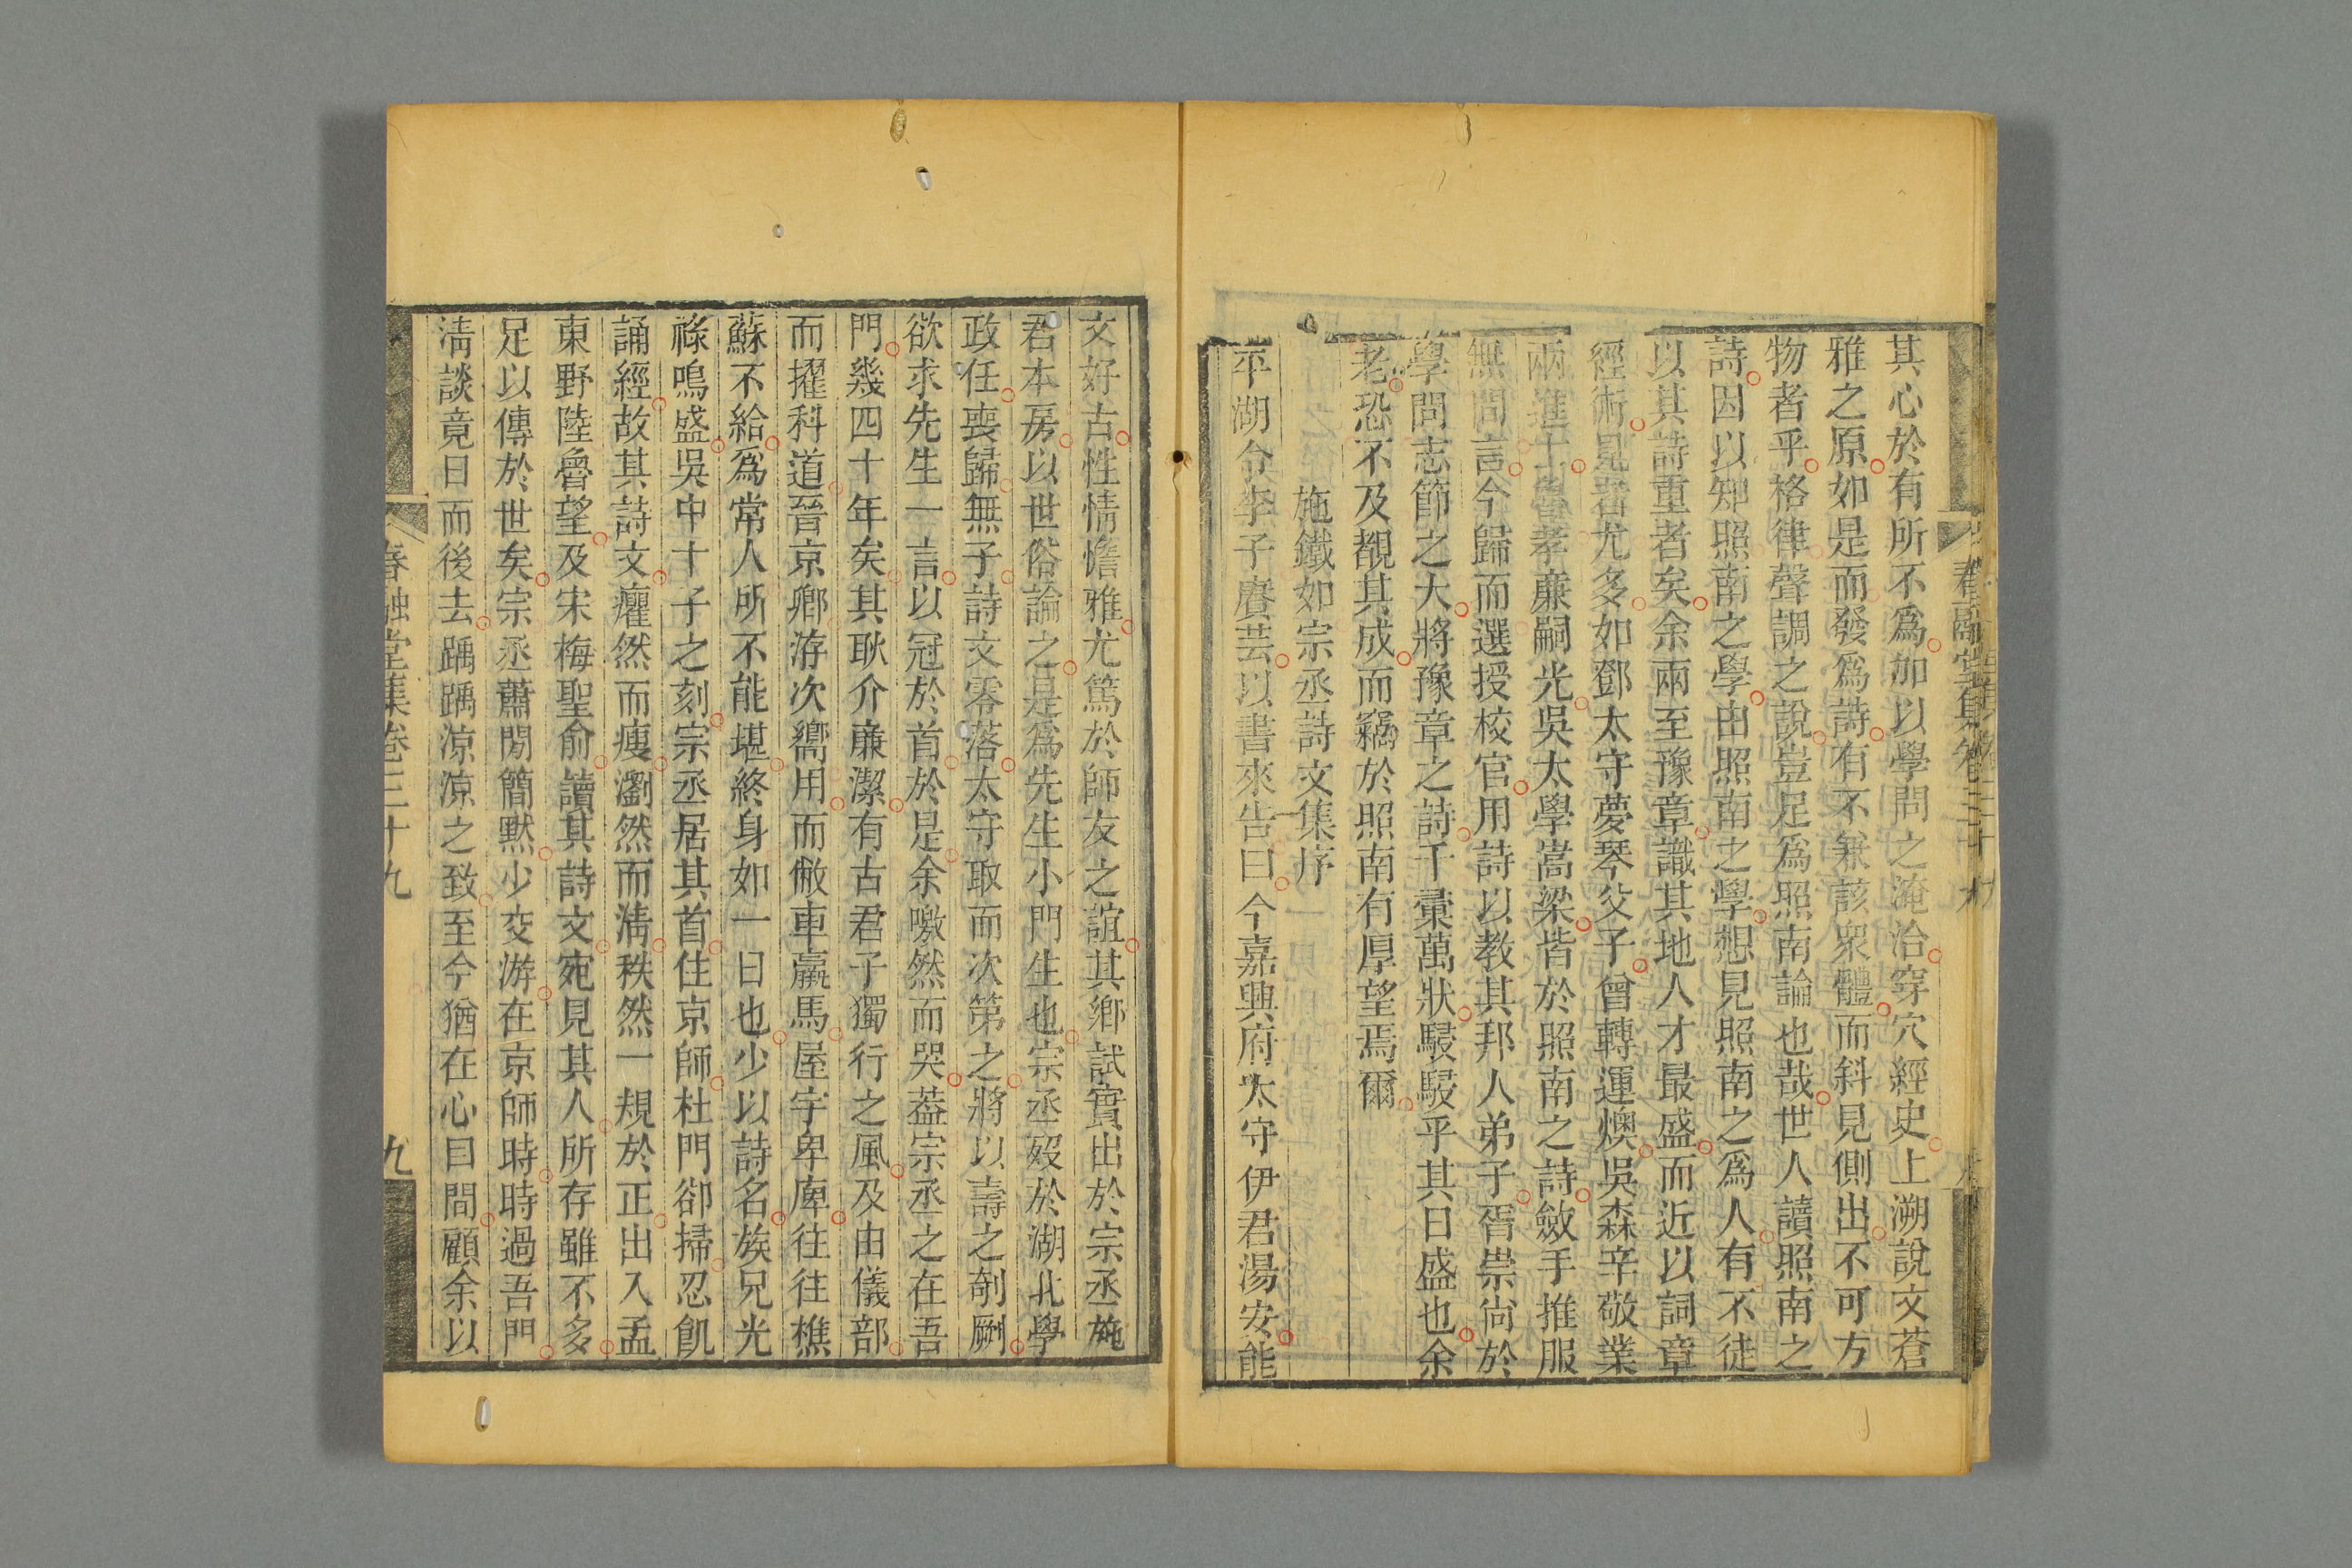 其心於有所不爲加以學問之淹洽穿穴經史上溯說文蒼
雅之原如是而發爲詩有不兼該衆體而斜見側出不可方
物者乎格律聲調之說豈足爲照南論也哉世人讀照南之
詩因以知照南之學由照南之學想見照南之爲人有不徒
以其詩重者矣余兩至豫章識其地人才最盛而近以詞章
經術見者尤多如鄧太守夢琴父子曾轉運燠吳森辛敬業
兩進士魯孝廉嗣光吳太學嵩梁皆於照南之詩斂手推服
無問言今歸而選授校官用詩以教其邦人弟子胥崇尙於
學問志節之大將豫章之詩千彚萬狀駸駸乎其日盛也余
老恐不及覩其成而竊於照南有厚望焉爾
施鐵如宗丞詩文集序
平湖令李子賡芸以書來告曰今嘉興府太守伊君湯安能
春融堂集卷三十九
文好古性情憺雅尤篤於師友之誼其鄉試實出於宗丞施
君本房以世俗論之是爲先生小門生也宗丞歿於湖北學
政任喪歸無子詩文零落太守取而次第之將以壽之剞劂
欲求先生一言以冠於首於是余噭然而哭葢宗丞之在吾
門幾四十年矣其耿介廉潔有古君子獨行之風及由儀部
而擢科道晉京卿洊次嚮用而敝車羸馬屋宇卑庳往往樵
蘇不給爲常人所不能堪終身如一日也少以詩名族兄光
祿鳴盛吳中十子之刻宗丞居其首住京師杜門卻掃忍飢
誦經故其詩文癯然而瘦瀏然而淸秩然一規於正出入孟
東野陸魯望及宋梅聖俞讀其詩文宛見其人所存雖不多
足以傳於世矣宗丞蕭閒簡默少交游在京師時時過吾門
淸談竟日而後去踽踽凉凉之致至今猶在心目間顧余以
春融堂集卷三十九
九